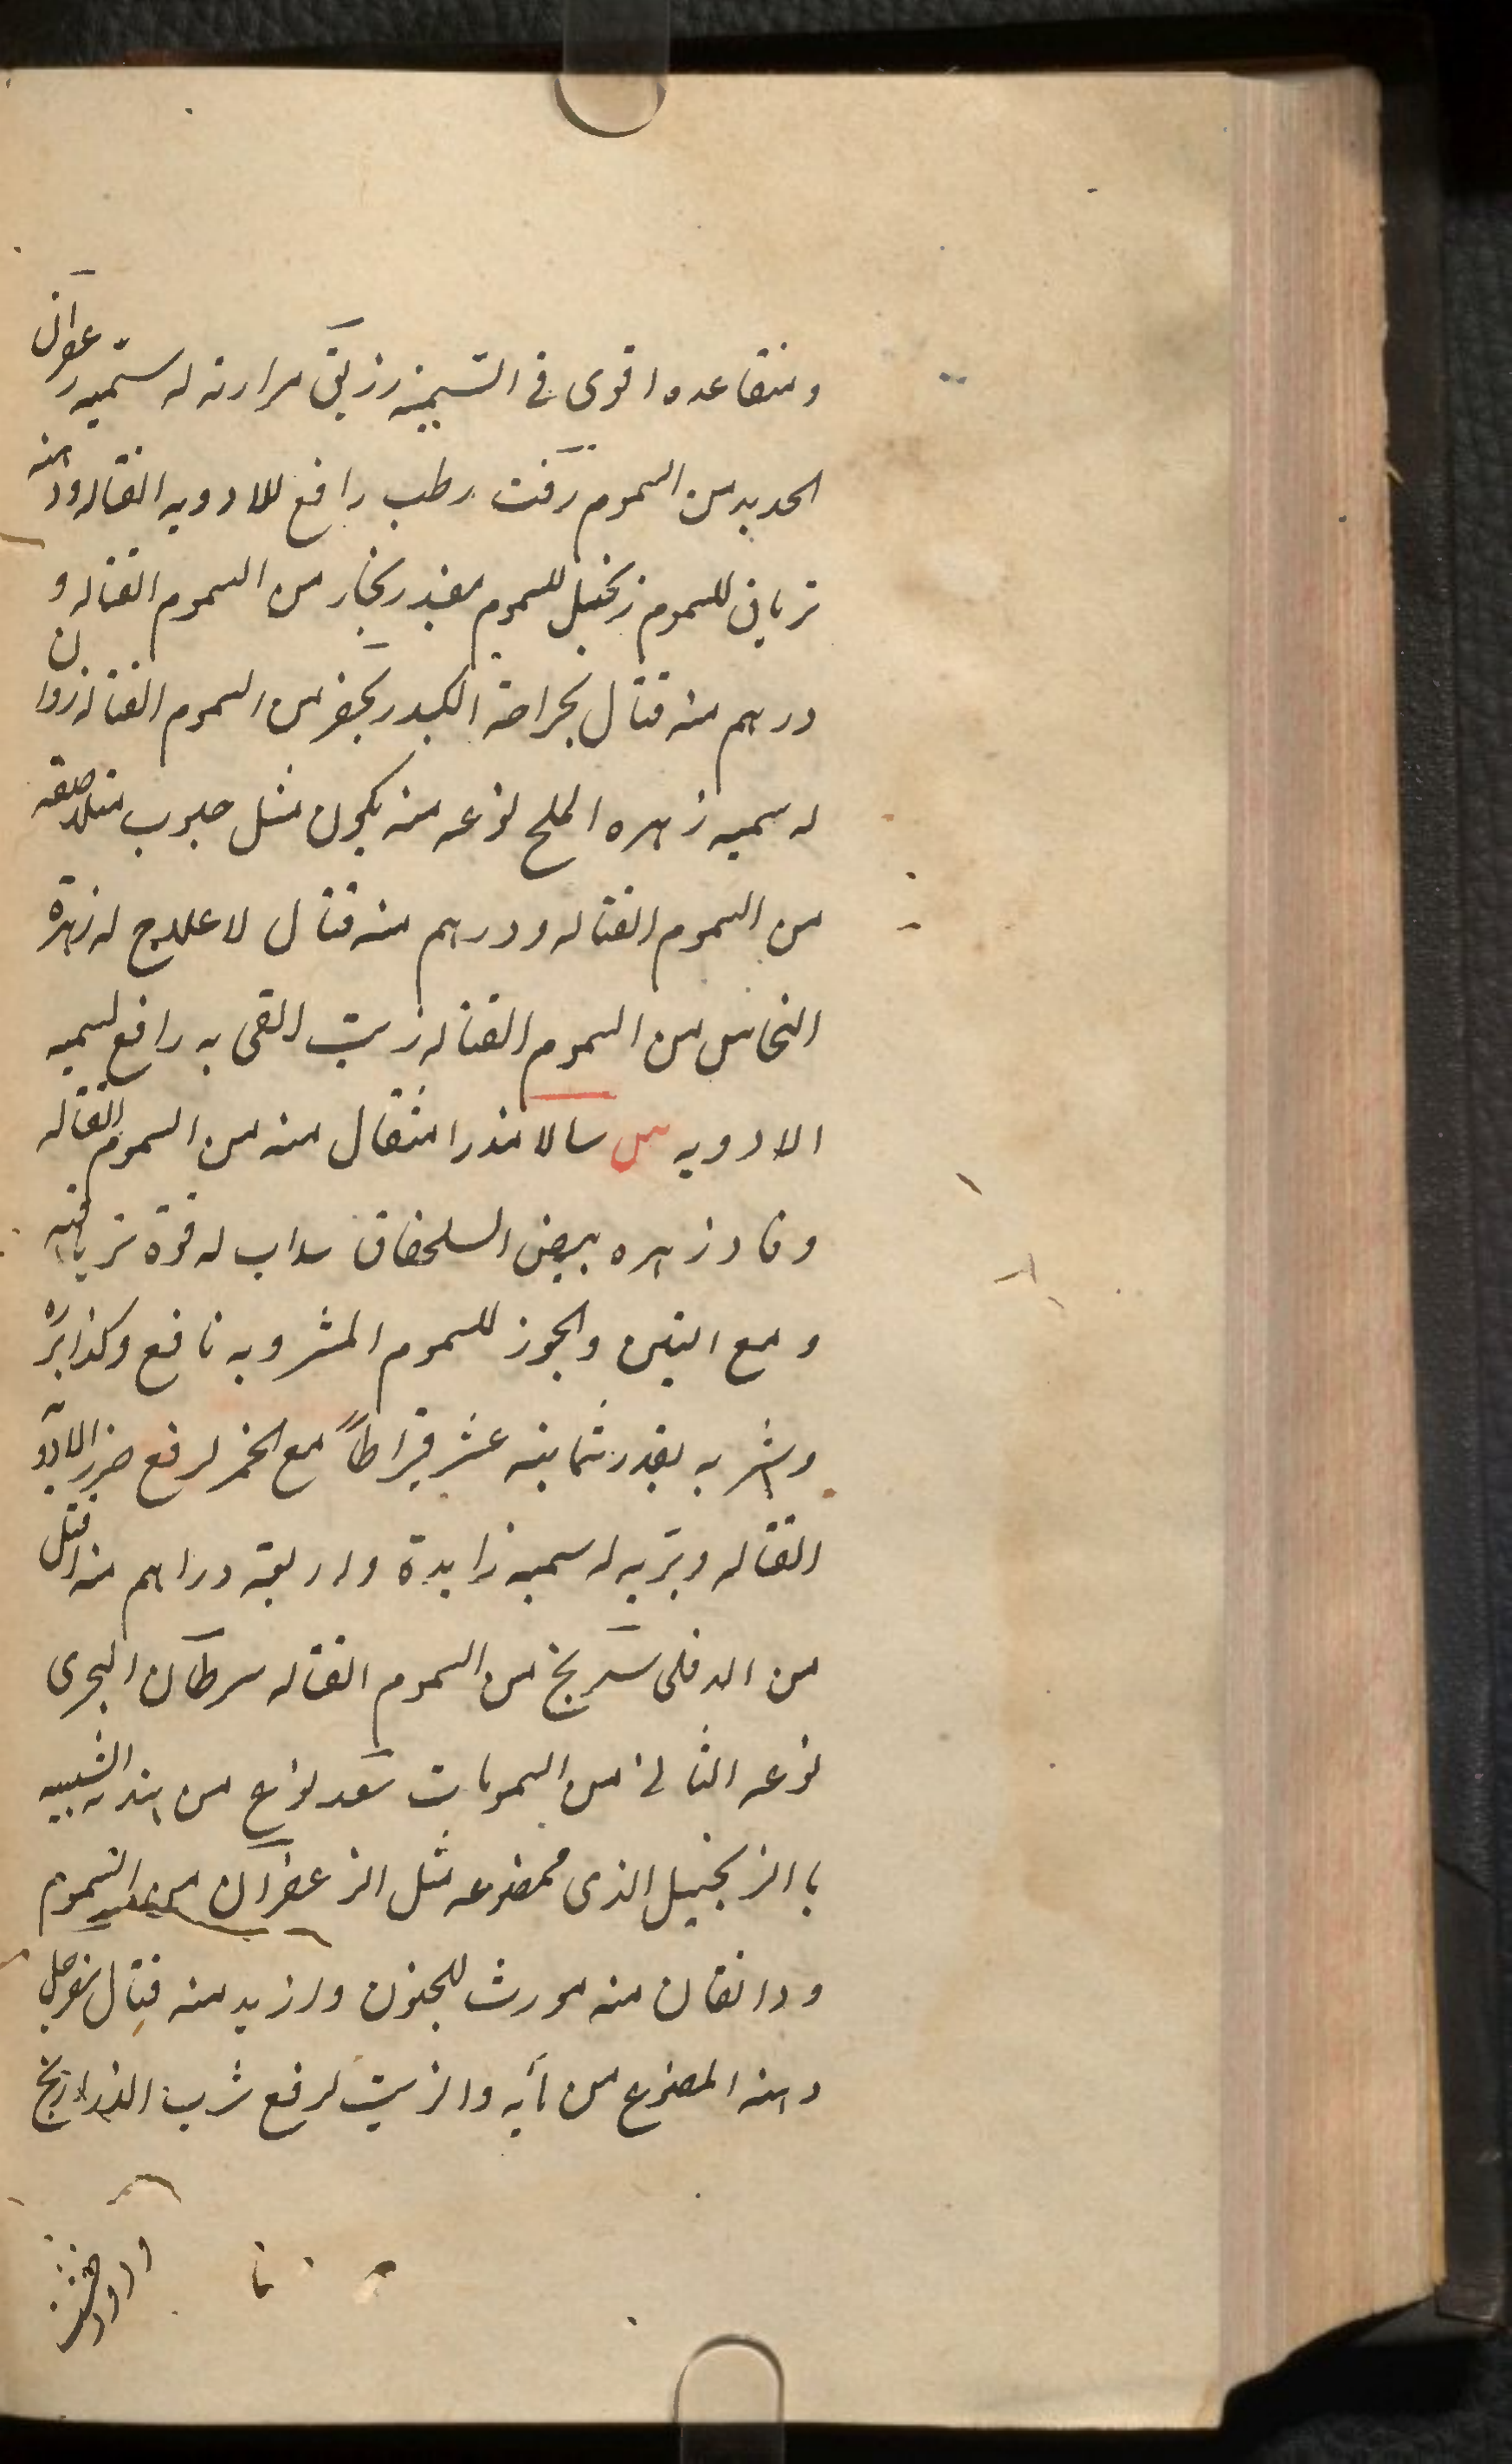 ومتصاعده اقوى فى السمية زرنيق مرارته له سمّيه زعفران
الحديد من السموم زفت رطب رافع للادويه القتاله ودهنه
ترياق للسموم زنجبيل للسموم مفيد زنجار من السموم القتاله و
درهم منه قتال بجراحة الكبد زنجفر من السموم القتاله زوان
له سميه زهره الملح نوعه منه يكون مثل حبوب متلاصقه
من السموم القتاله ودرهم منه قتال لا علاج له زهرة
النحاس من السموم القتاله زيت القى به رافع لسميه
الادويه س سالامندرا مثقال منه من السموم القتاله
وفادزهره بيض السلحفات سداب له قوة ترياقيه
و مع التين والجوز للسموم المشروبه نافع وكذا بزره
وشربه بقدر ثمانية عشر قيراطاً مع الخمر لرفع ضرر الادويه
القتاله وبرّيه له سميه زايدة واربعة دراهم منه اقتل
من الدفلى سرنج من السموم القتاله سرطان البحرى
نوعه الثانى من السمومات سعد نوع من هنديه الشبيه
با الزنجبيل الذى ممضوغه مثل الزعفران من السموم
ودانقان منه مورث للجنون وازيد منه قتال سفرجل
دهنه المصنوع من مآيه والزيت لرفع شرب الذراريح